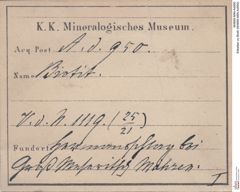 K. K. Mineralogisches Museum.
Acq. Post A. d. 950.
Name Biotit.
V. d. N. 1119. (25/21)
Fundort bei
Groß Meseritsch Mähren.
I